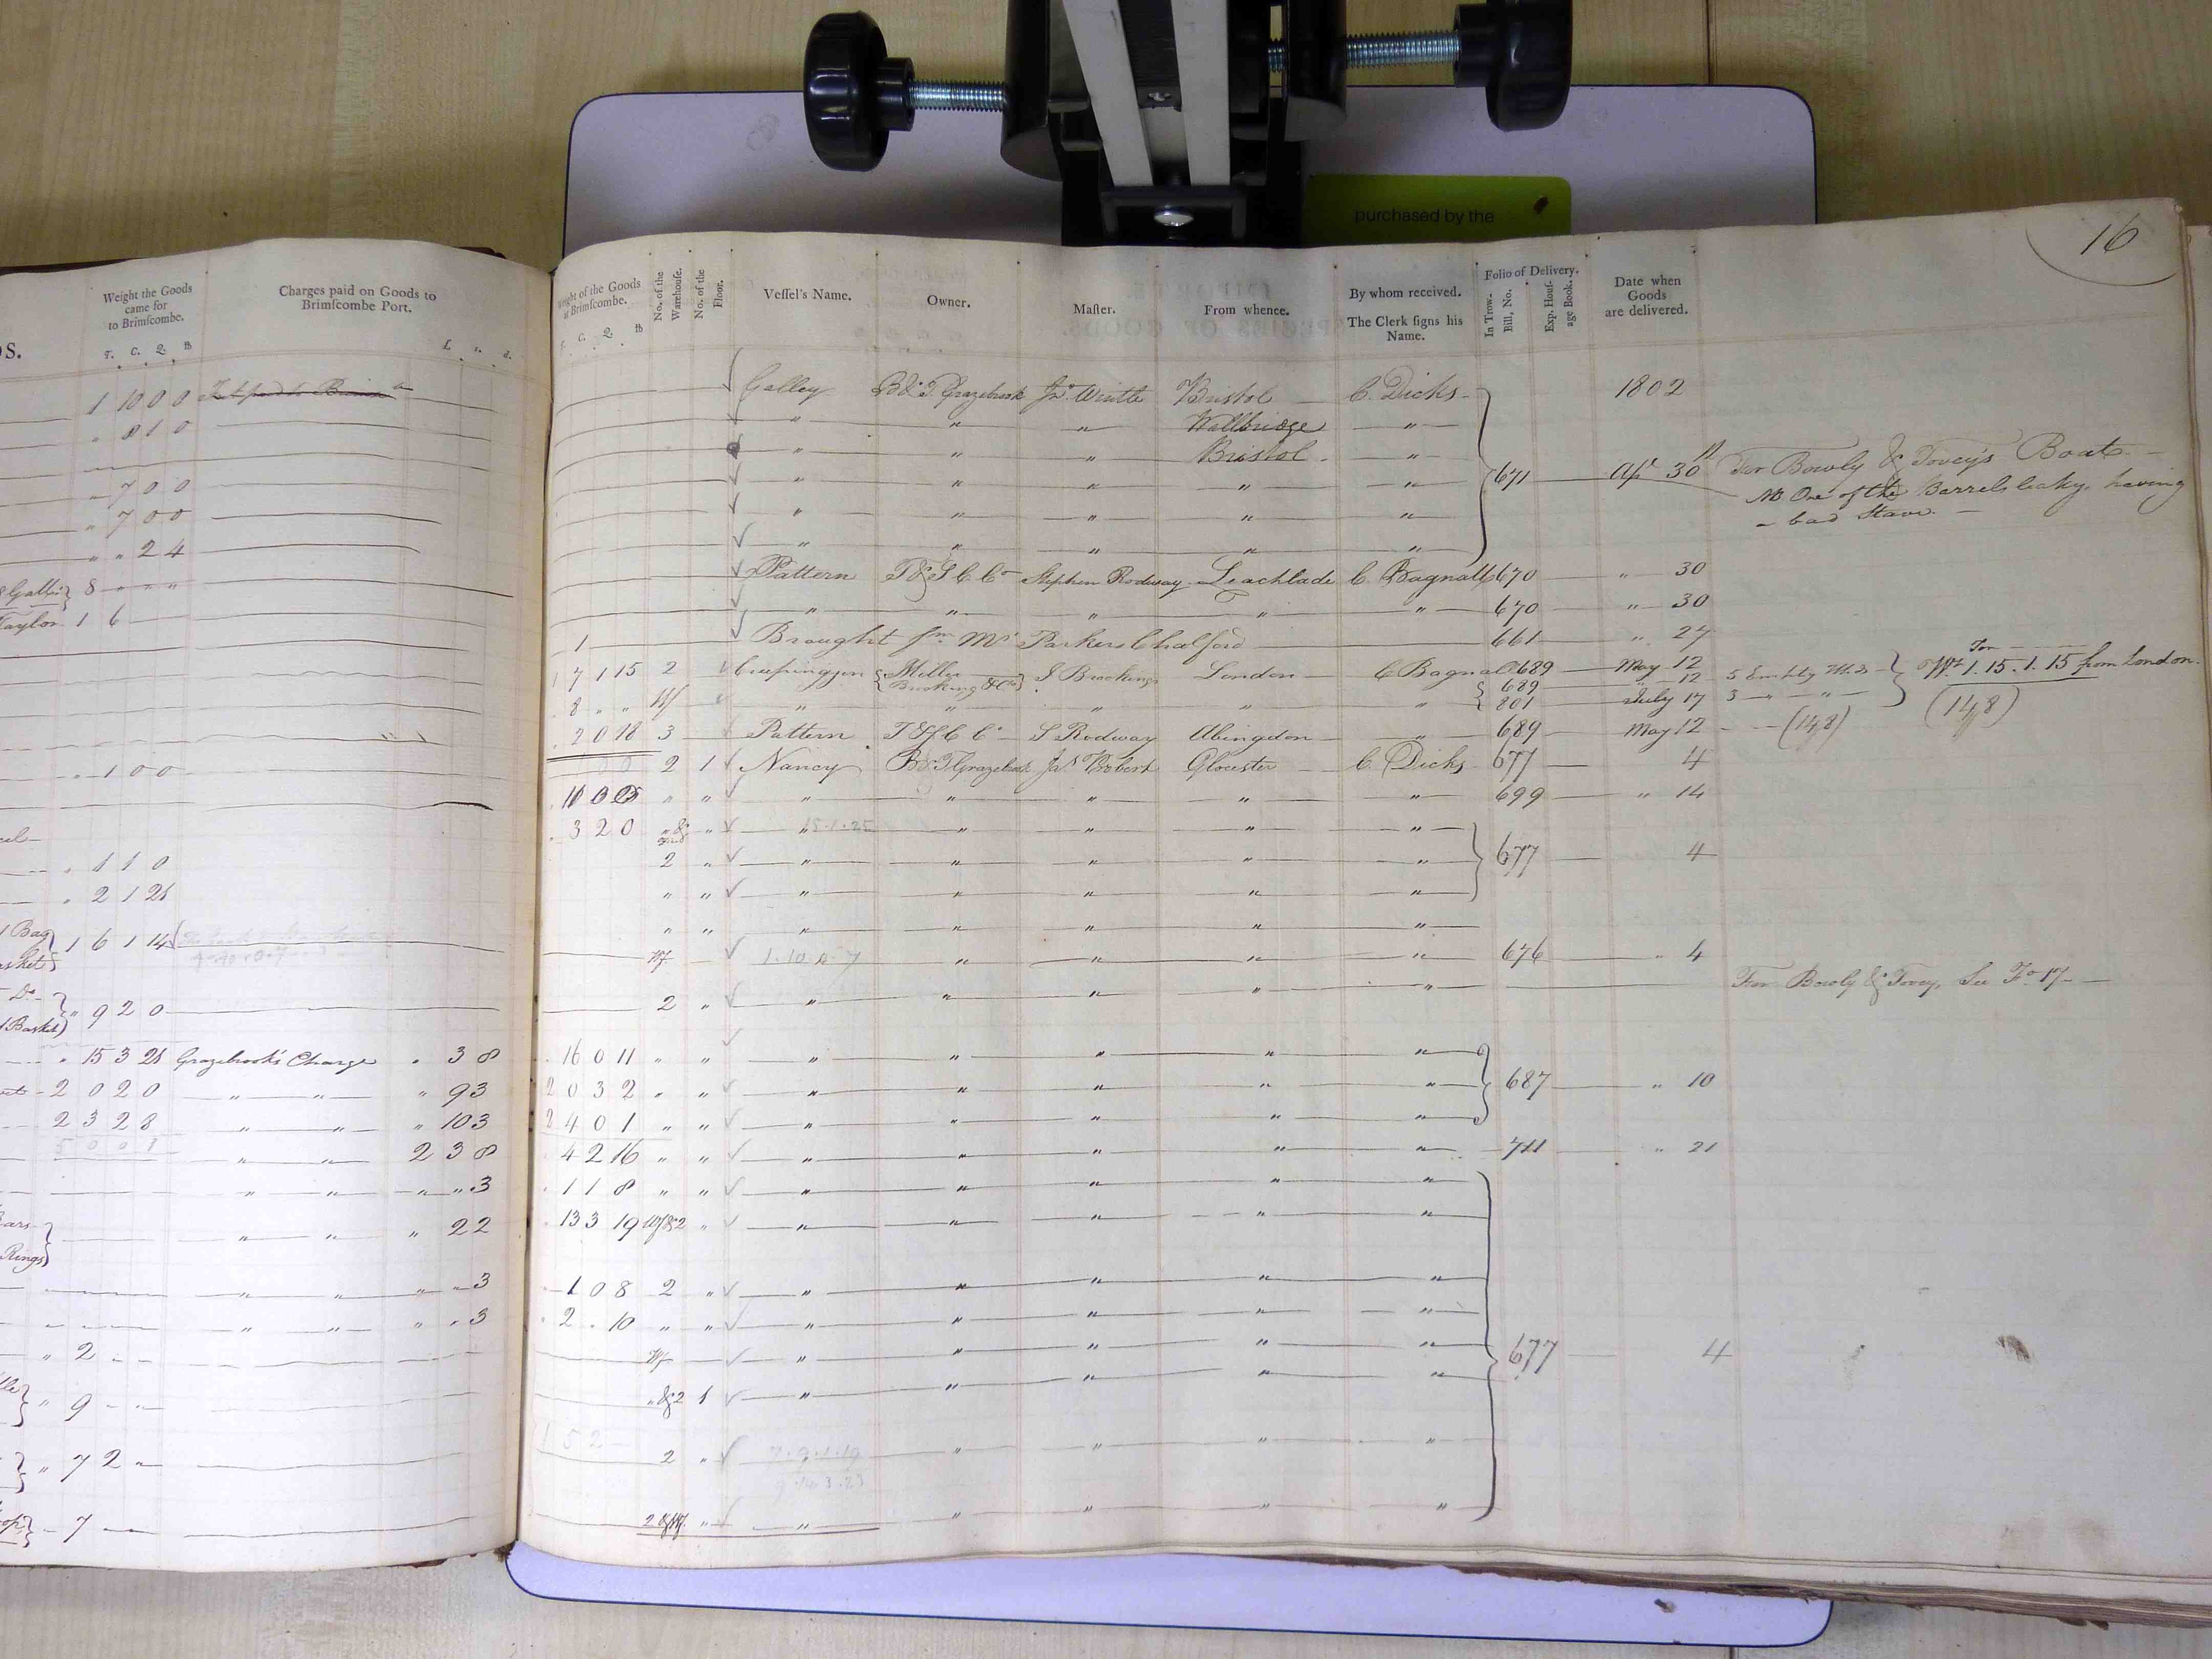 purchased by the
16
Weight the Goods
came for
to Brimſcombe.
T. C. Q. lb
Charges paid on Goods to
Brimſcombe Port.
£. s. d.
Weight of the Goods
at Brimſcombe.
T. C. Q. lb
No. of the
Warehouſe.
No. of the
Floor.
Veſſel's Name.
Owner.
Maſter.
From whence.
By whom received.
The Clerk ſigns his
Name.
Folio of Delivery.
In Trow.
Bill, No.
Exp. Houſ-
age Book.
Date when
Goods
are delivered.
OS.
1 10 0 0
" 8 1 0
" 7 0 0
" 7 0 0
" " 2 4
8 " " "
Taylor 1 6
" 1 0 0
" 1 1 0
" 2 1 21
1 Bag 1 6 1 14
Do
1 Basket " 9 2 0
" 15 3 21 Grazebrook's Charge " 3 8
2 0 2 0 " " " 9 3
2 3 2 8 " " " 10 3
5 0 0 1 " " 2 3 8
" " " " 3
" " " 2 2
Rings
" " " " 3
" " " " 3
" 2 " "
" 9 " "
" 7 2 "
7
Galley B & T. Grazebrook Jno. Wintle Bristol C. Dicks 1802
" " " Wallbridge "
" " " Bristol "
" " " " " 671 Apl 30 For Bowly & Tovey's Boat
" " " " " NB One of the Barrels leaky, having
" " " " " a bad Stave
Pattern T & S C Co Stephen Rodway Leachlade C. Bagnall 670 " 30
" " " " " 670 " 30
1 Brought fm Mr Parkers Chalford 661 " 27
7 1 15 2 Miller S Brookings London C Bagnall 689 May 12 5 Empty
Brooking & Co 689 " 12 Wt. 1.15.1.15 from London
8 " " Wf " " " " " 801 July 17 3 " " (148)
2 0 18 3 Pattern T & S C Co S Rodway Abingdon " 689 May 12 (148)
2 1 Nancy B & T. Grazebrook Glocester C. Dicks 677 4
" " " " " " " 699 " 14
3 2 0 " & " 15.1.25 " " " "
2 " " " " " " 677 4
" " " " " " "
" " " " " "
Wf 1.10.0.7 " " " " 676 " 4
2 " " " " " " For Bowly & Tovey, See Fo. 17
16 0 11 " " " " " " "
2 0 3 2 " " " " " " " 687 " 10
2 4 0 1 " " " " " " "
4 2 16 " " " " " " " 711 " 21
1 1 8 " " " " " " "
13 3 19 Wf & 2 " " " " " "
1 0 8 2 " " " " " "
2 " 10 " " " " " " "
Wf " " " " " 677 4
" & 2 1 " " " " "
1 5 2
2 " 7.9.1.19 " " " "
9.14.3.23
2 & Wf " " " " " "